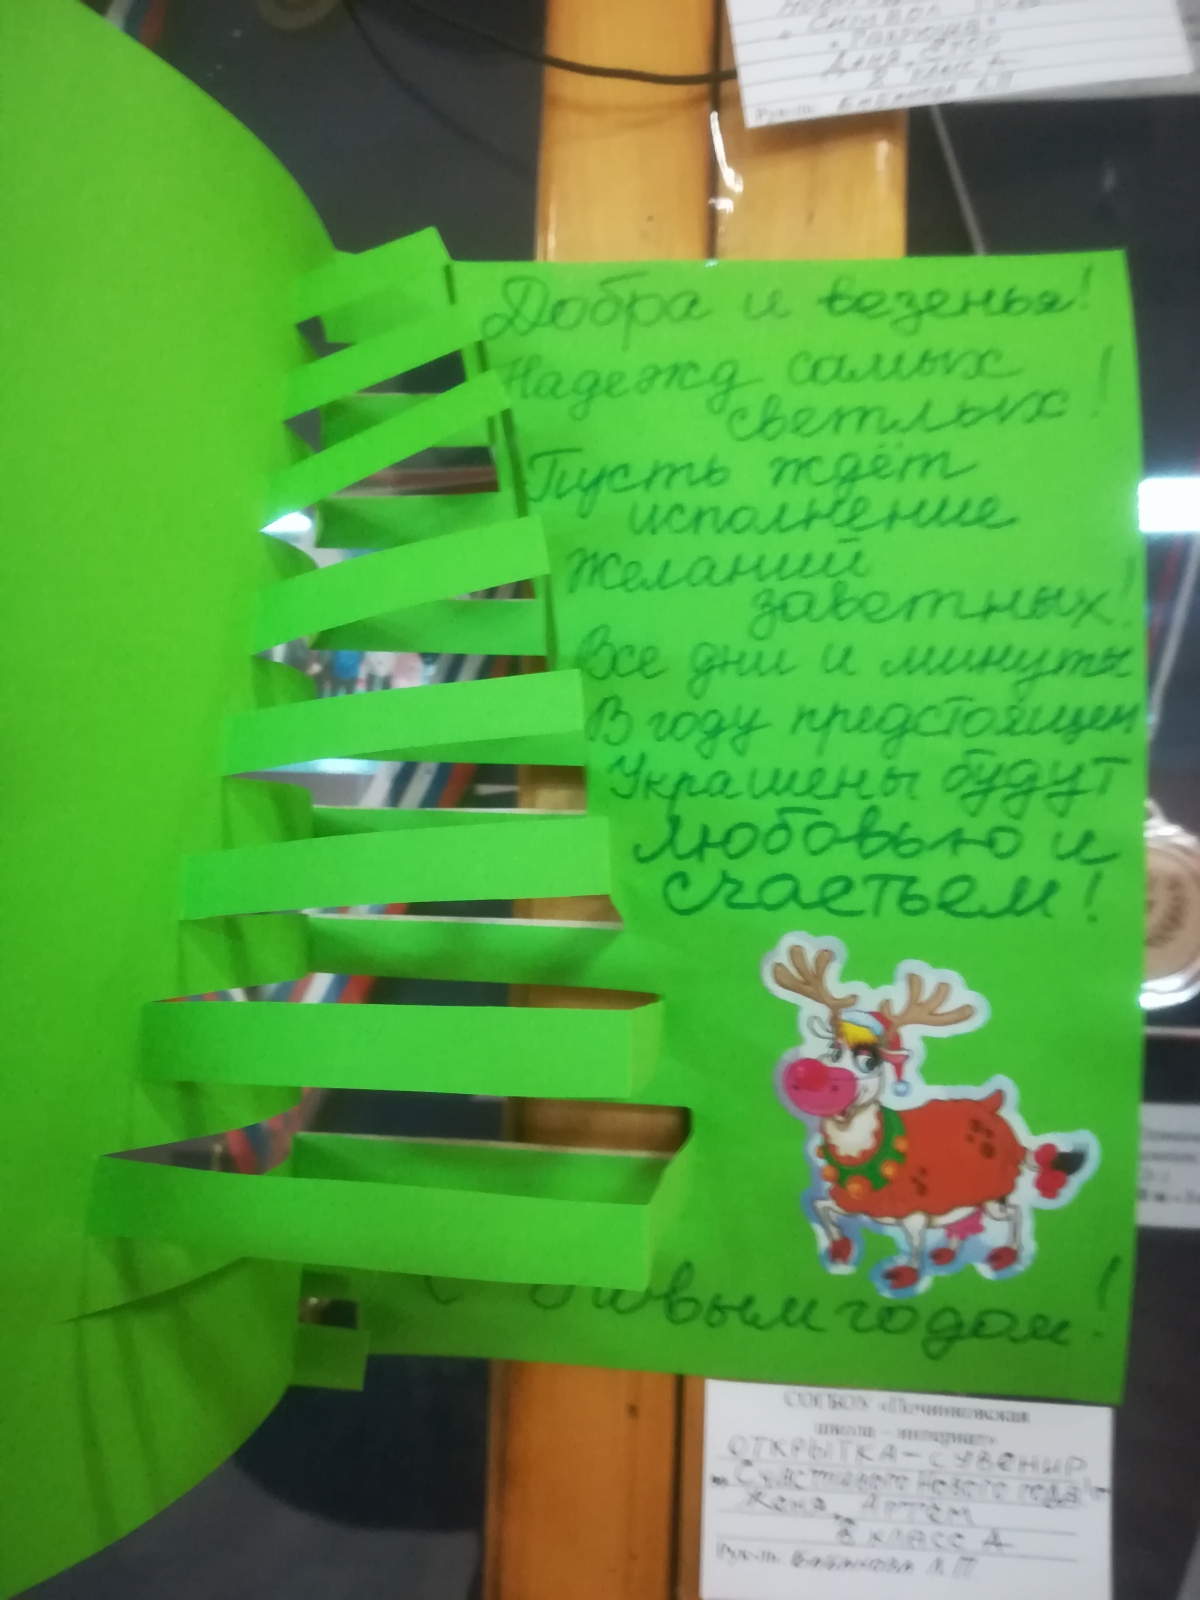 Символ года
Даня, Егор
8 класс А
Рук-ль:
Добра и везенья!
Надежд самых
светлых!
Пусть ждёт
исполнение
Желаний
заветных!
Все дни и минуты
В году предстоящем
Украшены будут
Любовью и
счастьем!
С Новым годом!
СОГБОУ «Починковская
школа – интернат»
ОТКРЫТКА – СУВЕНИР
„Счастливого Нового года!“
Женя, Артём
8 класс А
Рук-ль